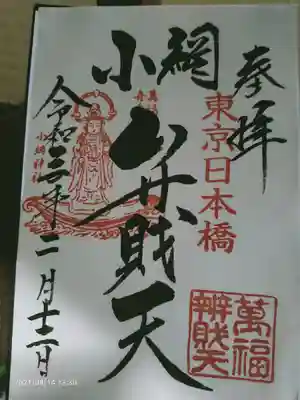 奉拝
東京日本橋
小網
弁財天
萬福
辨財天
小網神社
令和三年二月十二日